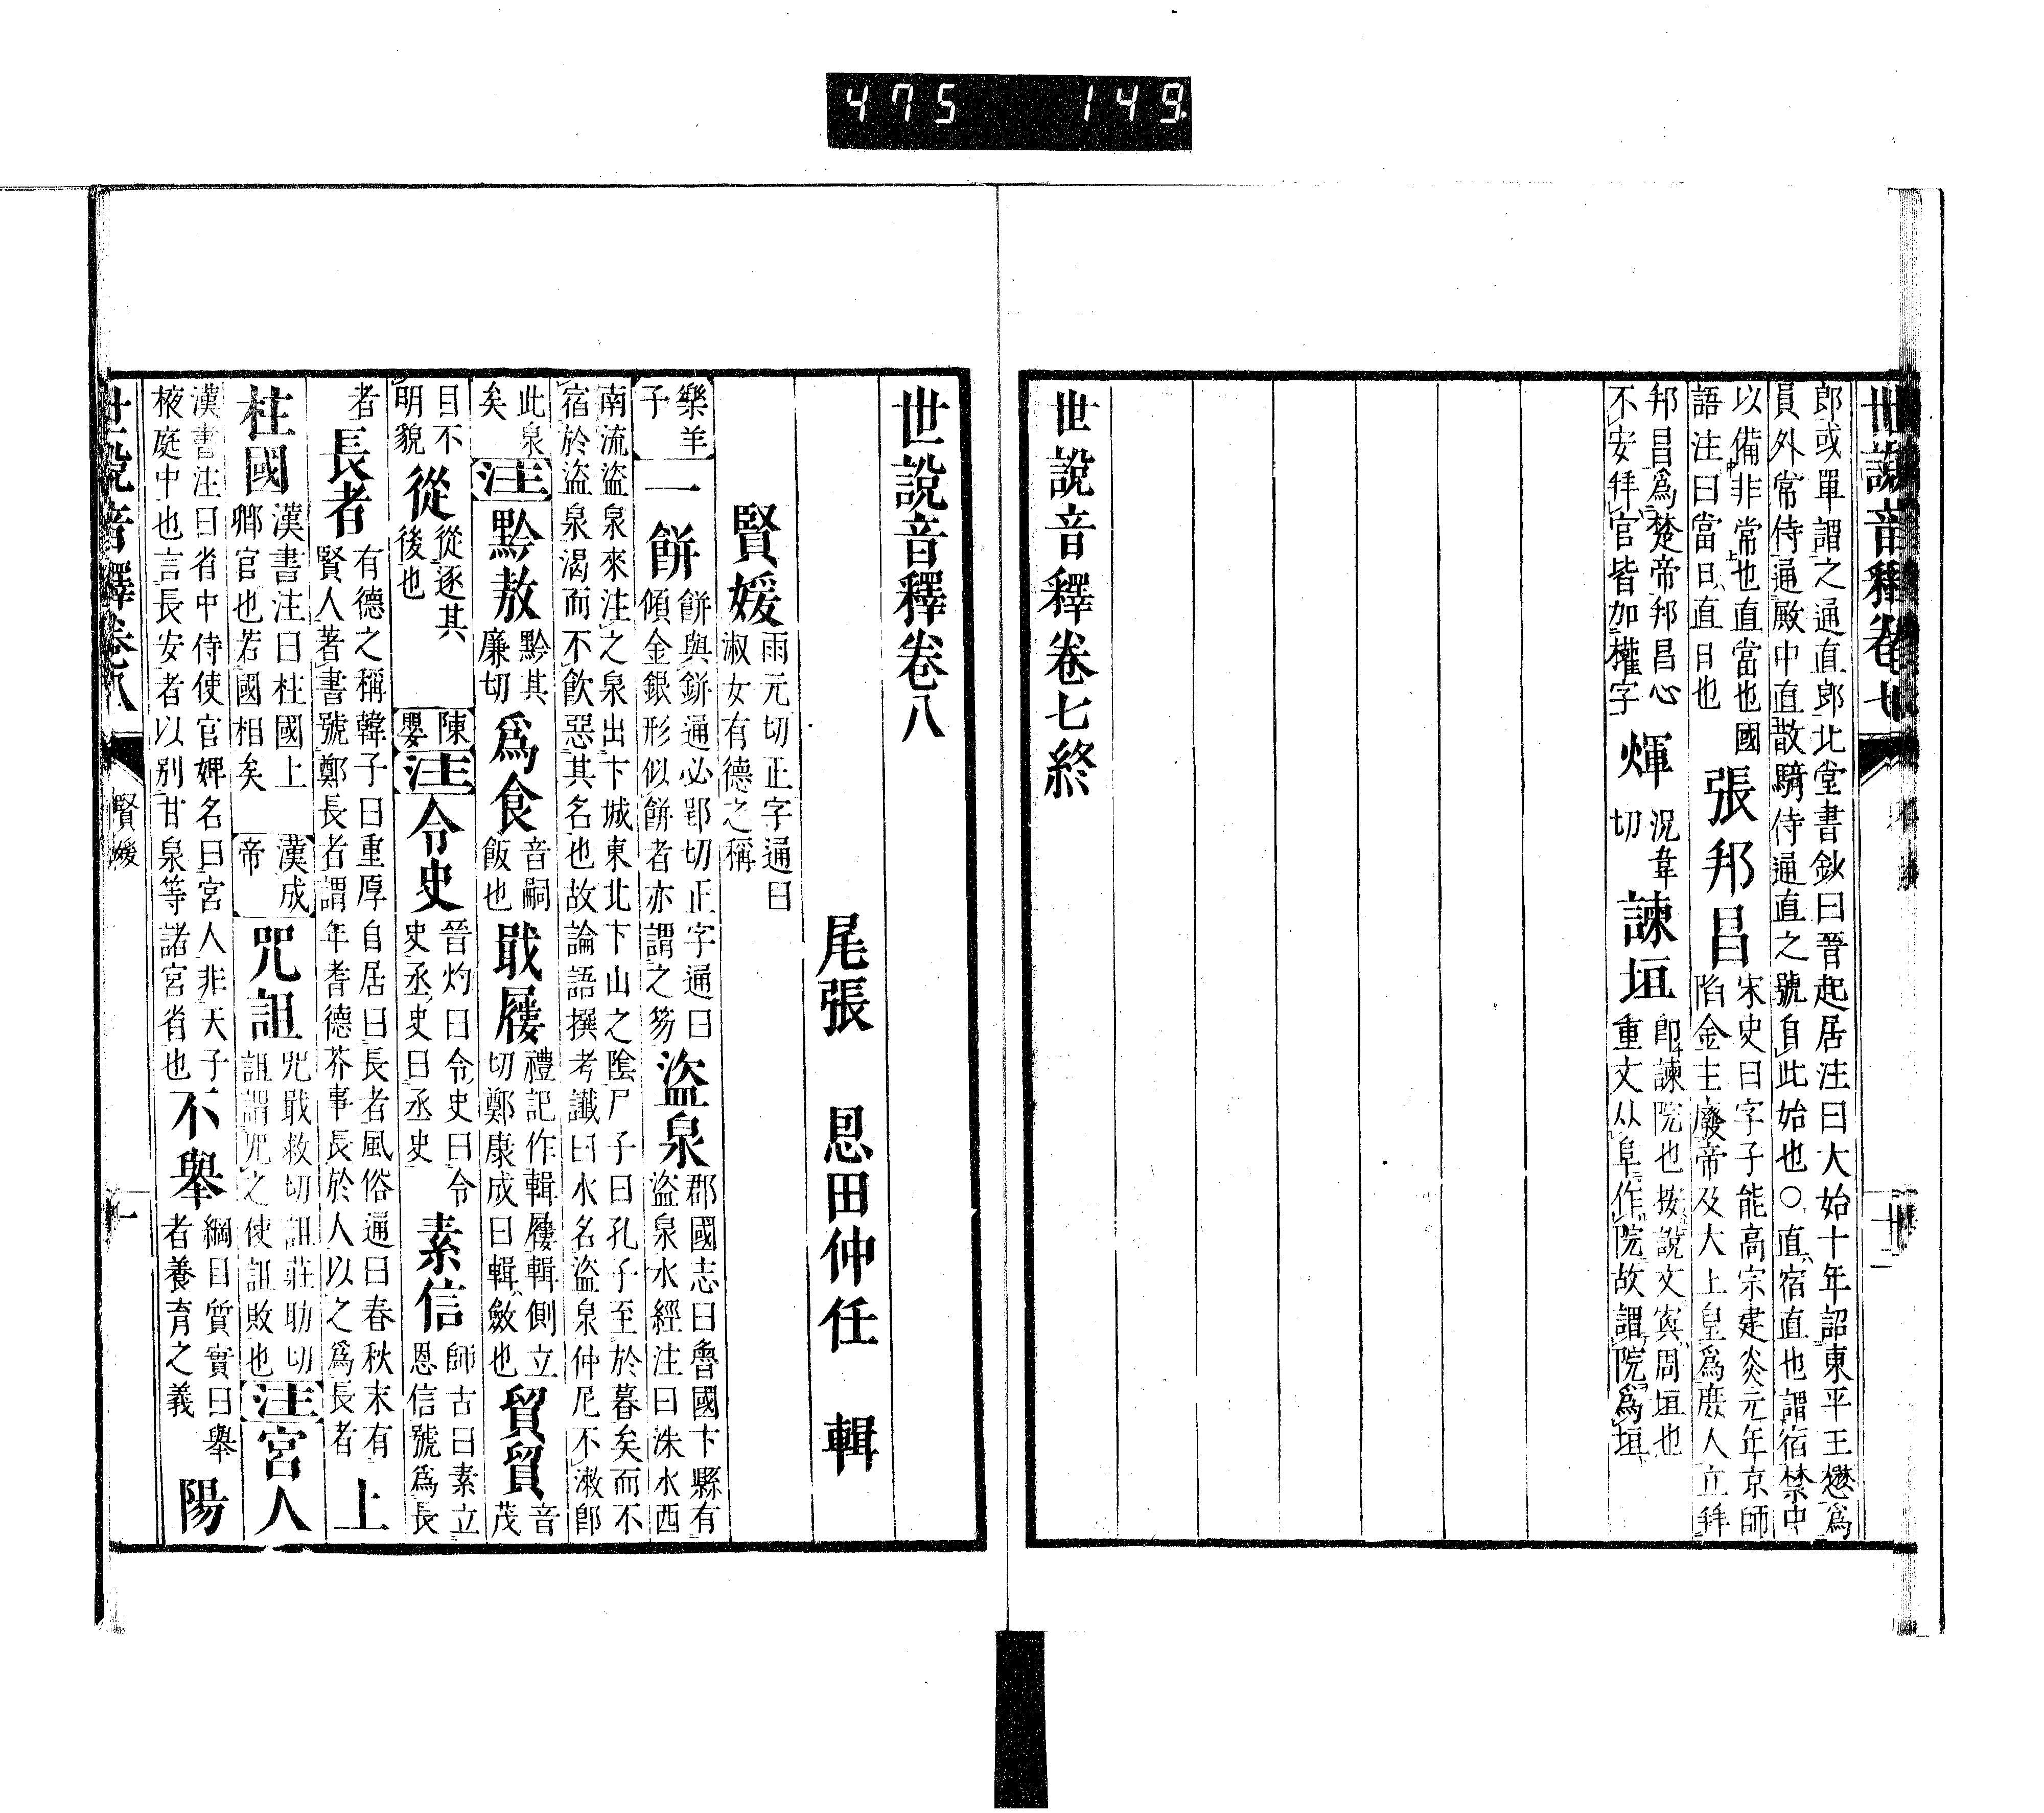 475 149
世說音釋卷七
郎或單謂之通直郎北堂書鈔曰晉起居注曰大始十年詔東平王楙爲
員外常侍通殿中直散騎侍通直之號自此始也○直宿直也謂宿禁中
以備非常也直當也國
語注曰當日直日也
張邦昌
宋史曰字子能高宗建炎元年京師
陷金主廢帝及大上皇爲庶人立拜
邦昌爲楚帝邦昌心
不安拜官皆加權字
煇
況韋
切
諫垣
即諫院也按說文寏周垣也
重文从阜作院故謂院爲垣
世說音釋卷七終
世說音釋卷八
尾張 恩田仲任 輯
賢媛
雨元切正字通曰
淑女有德之稱
樂羊
子
一餅
餅與鉼通必郢切正字通曰
傾金銀形似餅者亦謂之笏
盜泉
郡國志曰魯國卞縣有
盜泉水經注曰洙水西
南流盜泉來注之泉出卞城東北卞山之陰尸子曰孔子至於暮矣而不
宿於盜泉渴而不飲惡其名也故論語撰考讖曰水名盜泉仲尼不漱即
此泉
矣
注
黔敖
黔其
廉切
爲食
音嗣
飯也
戢屨
禮記作輯屨輯側立
切鄭康成曰輯斂也
貿貿
音
茂
目不
明貌
從
從逐其
後也
陳
嬰
注
令史
晉灼曰令史曰令
史丞史曰丞史
素信
師古曰素立
恩信號爲長
者
長者
有德之稱韓子曰重厚自居曰長者風俗通曰春秋末有
賢人著書號鄭長者謂年耆德芥事長於人以之爲長者
上
柱國
漢書注曰柱國上
卿官也若國相矣
漢成
帝
咒詛
咒戢救切詛莊助切
詛謂咒之使詛敗也
注
宮人
漢書注曰省中侍使官婢名曰宮人非天子
掖庭中也言長安者以別甘泉等諸宮省也
不舉
綱目質實曰舉
者養育之義
陽
世說音釋卷八
賢媛
一